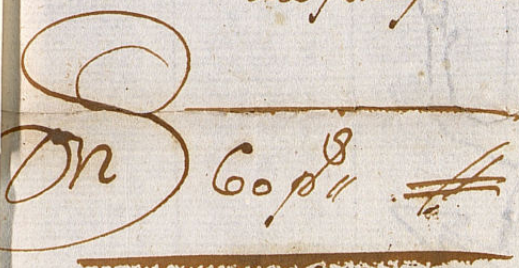 Son 60 p^s